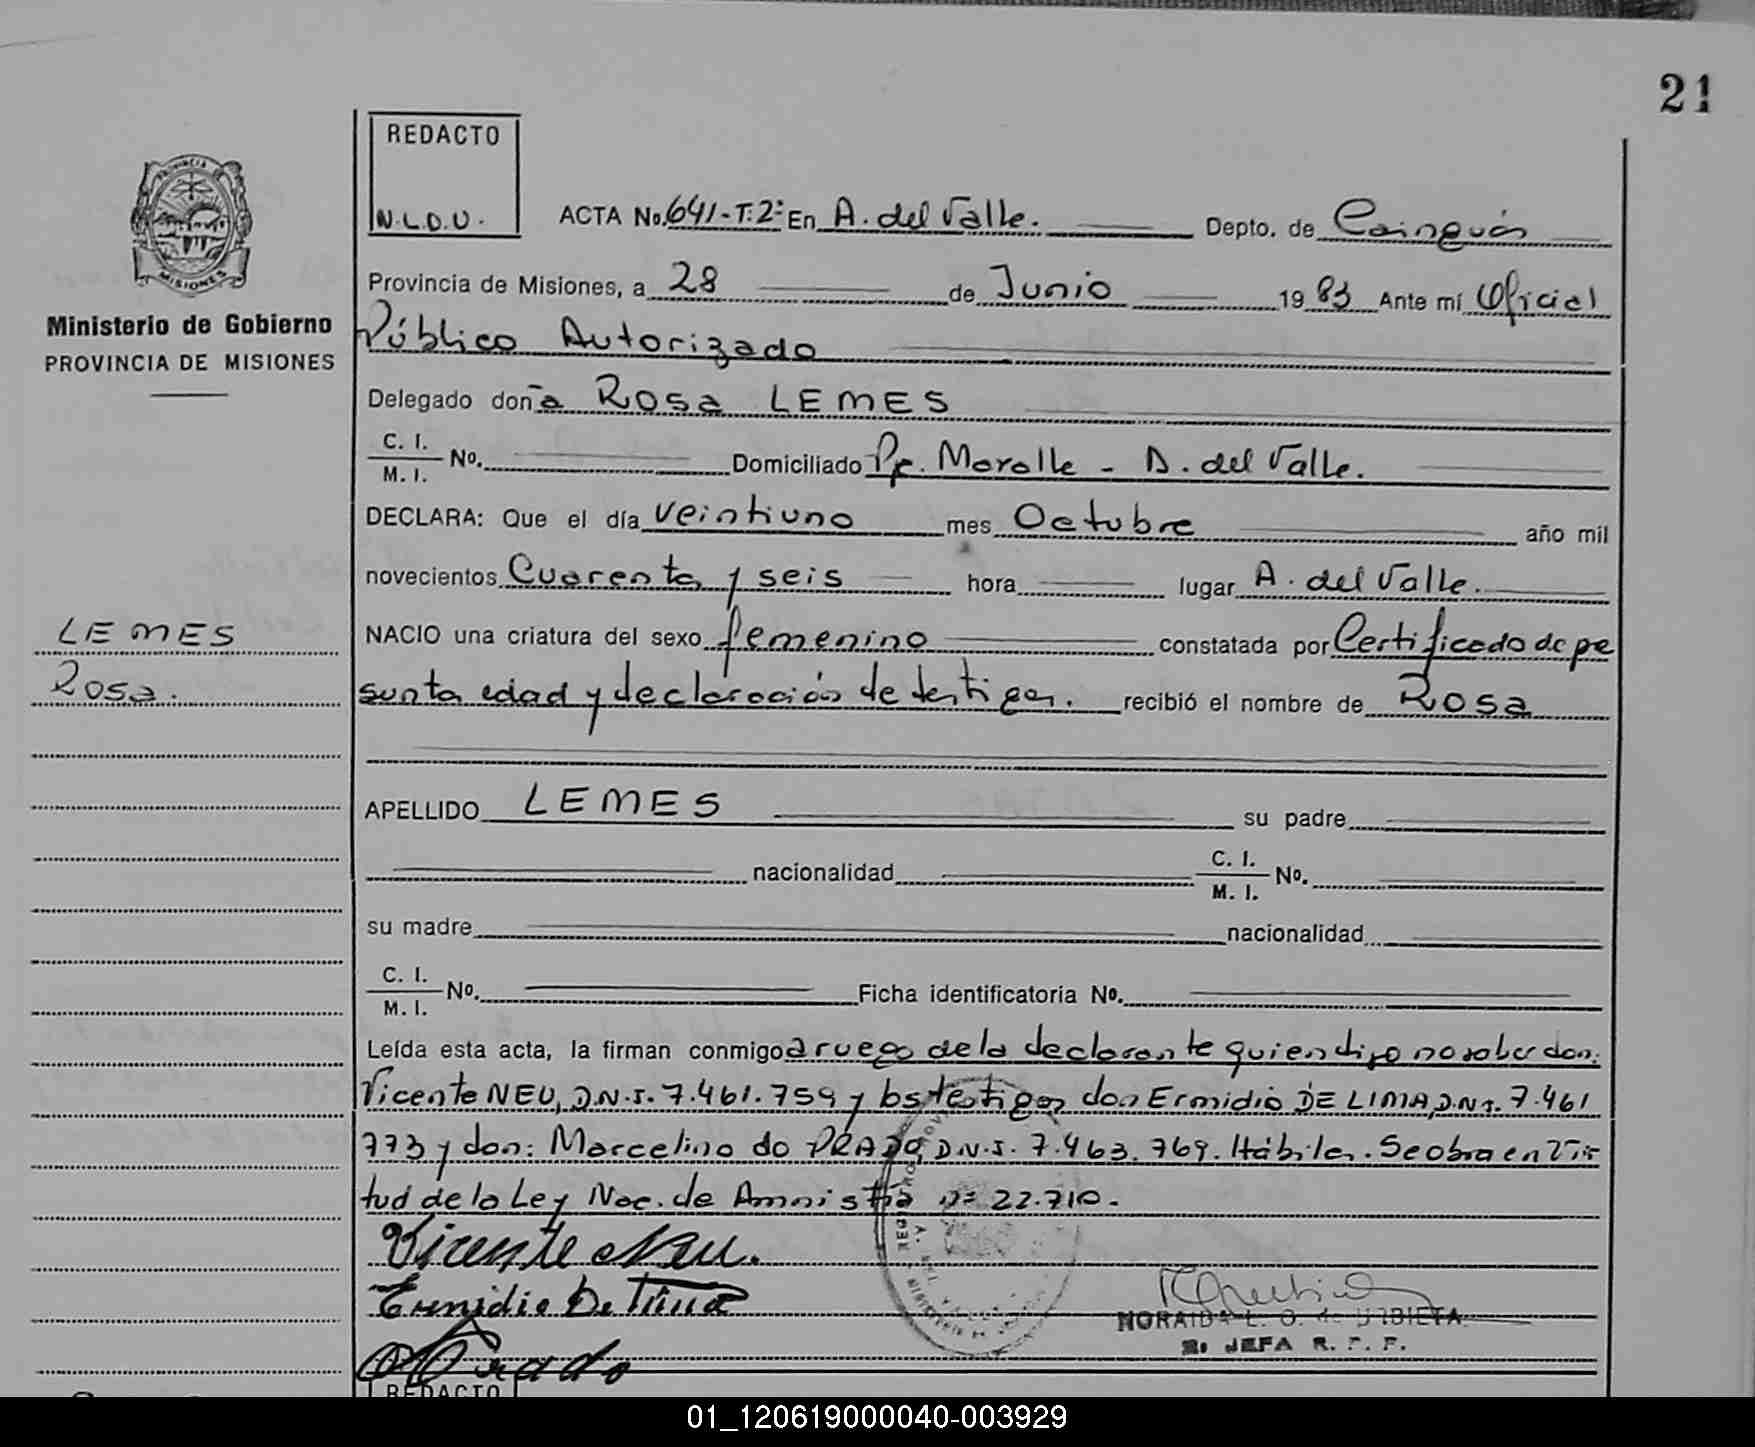 21
REDACTO
N.L.D.U.
ACTA No. 641-T:2º En A. del Valle. Depto. de Cainguás
MISIONES
Provincia de Misiones, a 28 de Junio 1983 Ante mí Oficial
Ministerio de Gobierno
PROVINCIA DE MISIONES
Público Autorizado
Delegado doña Rosa LEMES
C. I.
M. I. No. Domiciliado Pje. Morolle - A. del Valle.
DECLARA: Que el día veintiuno mes Octubre año mil
novecientos Cuarenta y seis hora lugar A. del Valle.
LEMES
Rosa.
NACIO una criatura del sexo femenino constatada por Certificado de pe
sunta edad y declaración de testigos. recibió el nombre de Rosa
APELLIDO LEMES su padre
nacionalidad C. I.
M. I. No.
su madre nacionalidad
C. I.
M. I. No. Ficha identificatoria No.
Leída esta acta, la firman conmigo a ruego de la declarante quien dijo no saber don:
Vicente NEU, D.N.I. 7.461.759 y los testigos don Ermidio DE LIMA, D.N.I. 7.461
773 y don: Marcelino do PRADO, D.N.I. 7.463.769. Hábiles. Se obra en Vir
tud de la Ley Nac. de Amnistía Nº 22.710.
Vicente Neu.
Ermidio De Lima
Prado
NORAIDA L. O. de URBIETA
JEFA R. P. P.
REDACTO
01_120619000040-003929